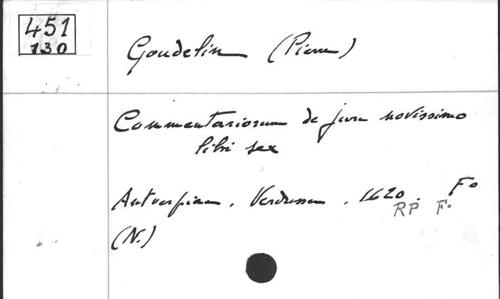 451
130
Goudelin (Pierre)
Commentariorum de jure novissimo
libri sex
Antverpiae, Verdussen, 1620. F°
RP F°
(N.)